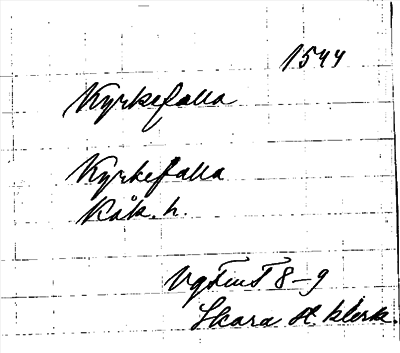 1544
Kyrkefalla
Kyrkefalla
Kåk. h.
VgFmT 8-9
Skara st. klerk.